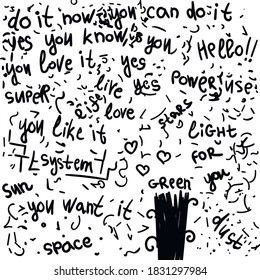 do it now you can do it
yes you know is you
Hello!!
you love it, yes
super live yes Power use
eyes love stars
you like it LIGHT
system FOR
sun GREEN you
you want it
dust
space
shutterstock
IMAGE ID: 1831297984
www.shutterstock.com